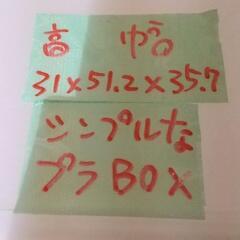 高 幅
31×51.2×35.7
シンプルな
プラBOX